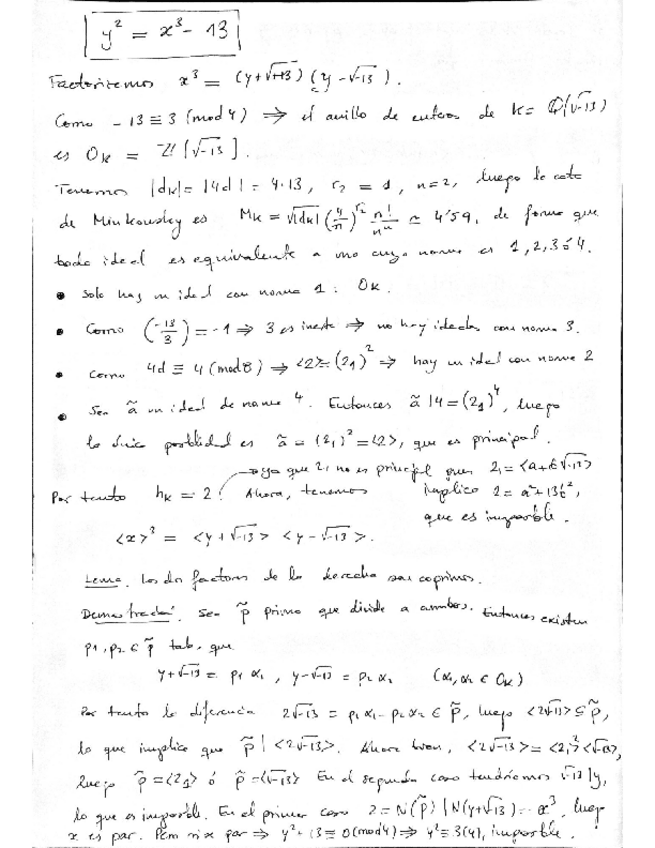 y² = x³ - 13
Factoricemos x³ = (y+√-13)(y-√-13).
Como -13 ≡ 3 (mod 4) ⇒ el anillo de enteros de K = Q(√-13)
es O_K = Z[√-13].
Tenemos |d_K| = |4d| = 4·13, r₂ = 1, n=2, luego la cota
de Minkowsky es M_K = √|d_K| (4/π)^{r₂} n!/nⁿ ≃ 4'59, de forma que
todo ideal es equivalente a uno cuya norma es 1, 2, 3 ó 4.
• Solo hay un ideal con norma 1: O_K.
• Como (-13/3) = -1 ⇒ 3 es inerte ⇒ no hay ideales con norma 3.
• Como 4d ≡ 4 (mod 8) ⇒ <2> = (2₁)² ⇒ hay un ideal con norma 2
• Sea ã un ideal de norma 4. Entonces ã | 4 = (2₁)⁴, luego
la única posibilidad es ã = (2₁)² = <2>, que es principal.
Por tanto h_K = 2. Ahora, tenemos
→ ya que 2₁ no es principal pues 2₁ = <a+b√-13>
implica 2 = a²+13b²,
que es imposible.
<x>³ = <y+√-13> <y-√-13>.
Lema. Los dos factores de la derecha son coprimos.
Demostración. Sea p̃ primo que divide a ambos. Entonces existen
p₁, p₂ ∈ p̃ tales que
y+√-13 = p₁α₁, y-√-13 = p₂α₂ (α₁,α₂ ∈ O_K)
Por tanto la diferencia 2√-13 = p₁α₁-p₂α₂ ∈ p̃, luego <2√-13> ⊆ p̃,
lo que implica que p̃ | <2√-13>. Ahora bien, <2√-13> = <2₁>²<√-13>,
luego p̃ = <2₁> ó p̃ = <√-13> En el segundo caso tendríamos √-13 | y,
lo que es imposible. En el primer caso 2 = N(p̃) | N(y+√-13) = x³, luego
x es par. Pero si x par ⇒ y²+13 ≡ 0 (mod 4) ⇒ y² ≡ 3 (4), imposible.